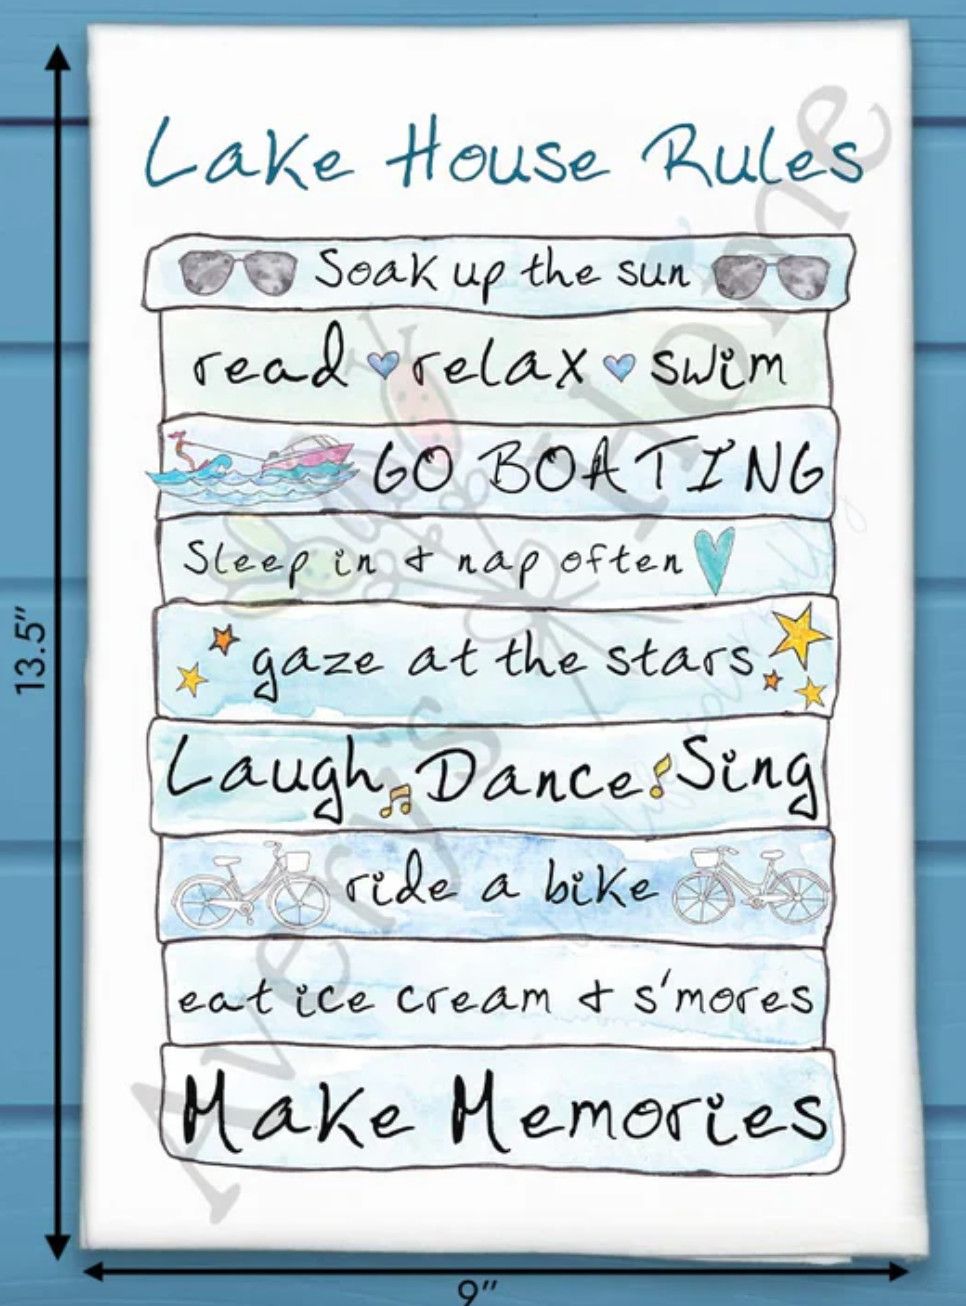 Lake House Rules
Soak up the sun
read relax swim
GO BOATING
Sleep in & nap often
gaze at the stars
Laugh Dance Sing
ride a bike
eat ice cream & s'mores
Make Memories
13.5"
9"
Avery's Home